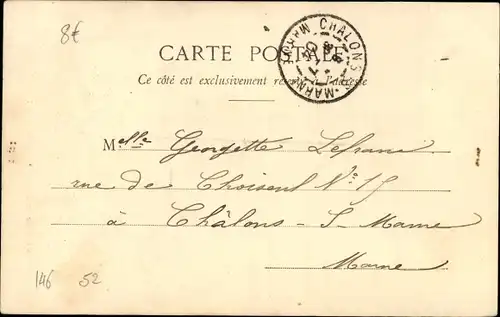 8€
CARTE POSTALE
CHALONS S MARNE
MARNE
Ce côté est exclusivement réservé à l'adresse
Melle Georgette Lefranc
rue de Choiseul No 15
à Châlons - S - Marne
Marne
146 52